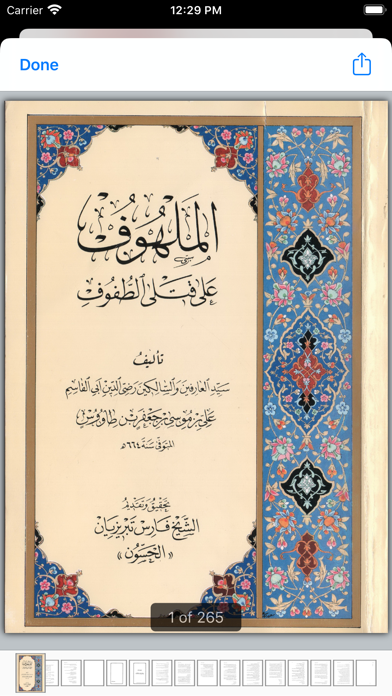 Carrier 12:29 PM
Done
الملهوف
على قتلى الطفوف
تأليف
سيد العارفين والسالكين رضي الدين أبي القاسم
علي بن موسى بن جعفر بن طاووس
المتوفى سنة ٦٦٤ه
تحقيق وتقديم
الشيخ فارس تبريزيان
« الحسون »
1 of 265